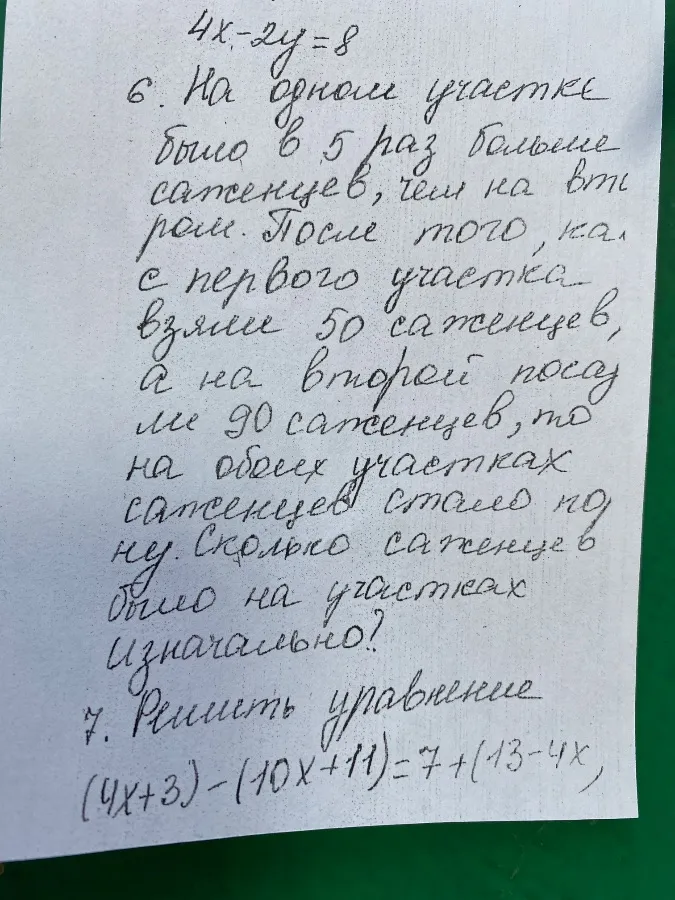 4x-2y=8
6. На одном участке
было в 5 раз больше
саженцев, чем на вт
ром. После того, ка
с первого участка
взяли 50 саженцев,
а на второй поса
ли 90 саженцев, то
на обоих участках
саженцев стало по
ну. Сколько саженцев
было на участках
изначально?
7. Решить уравнение
(4x+3)-(10x+11)=7+(13-4x)